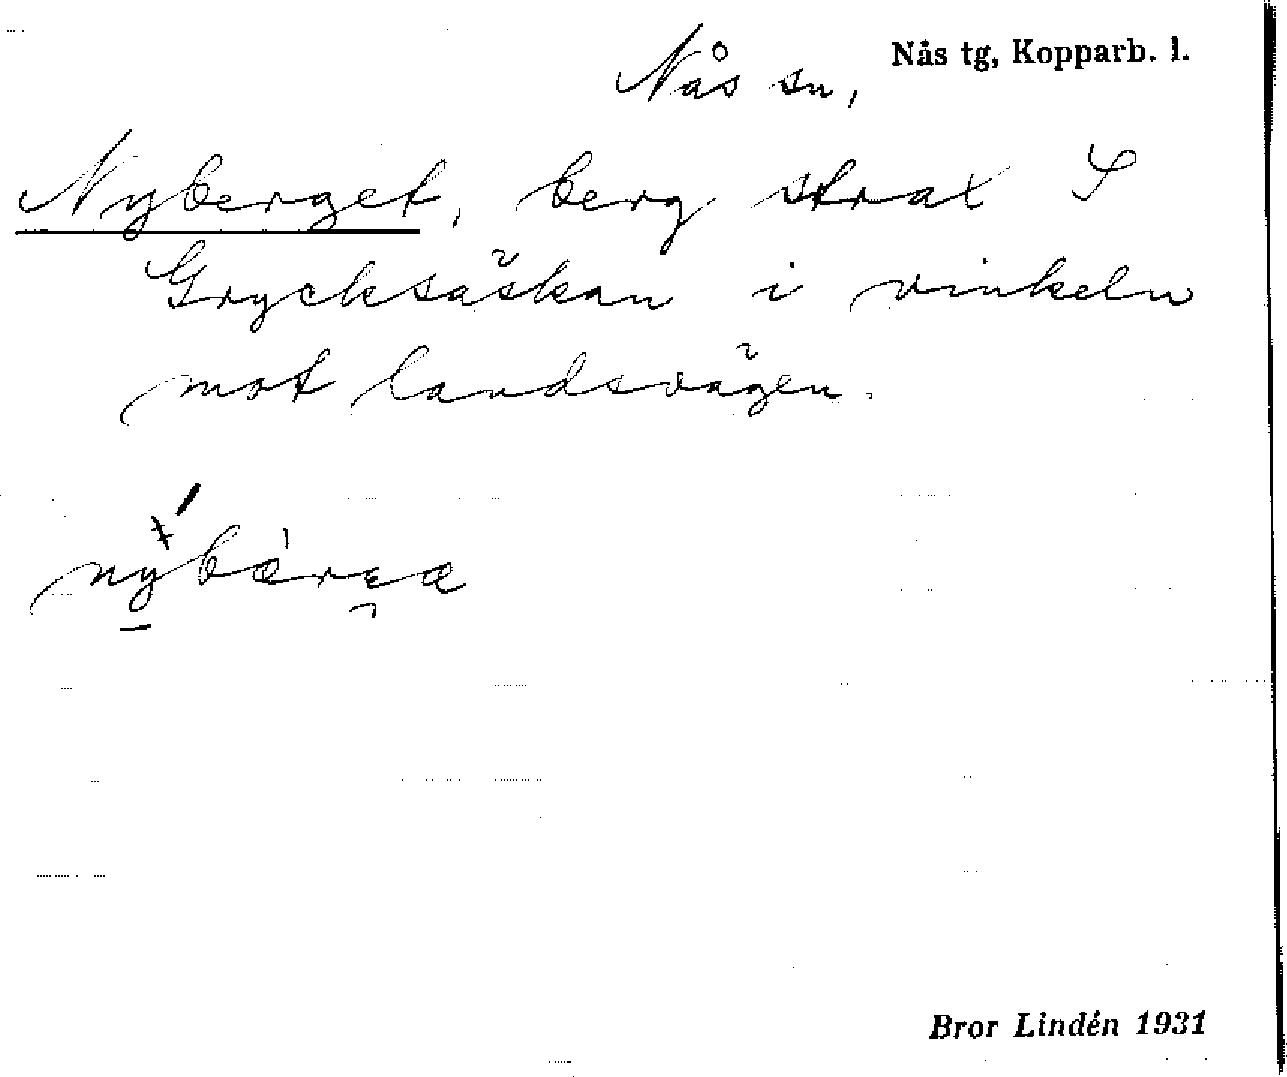 Nås tg, Kopparb. l.
Nås sn,
Nyberget, berg strax S
Grycksäskan i vinkeln
mot landsvägen.
Bror Lindén 1931